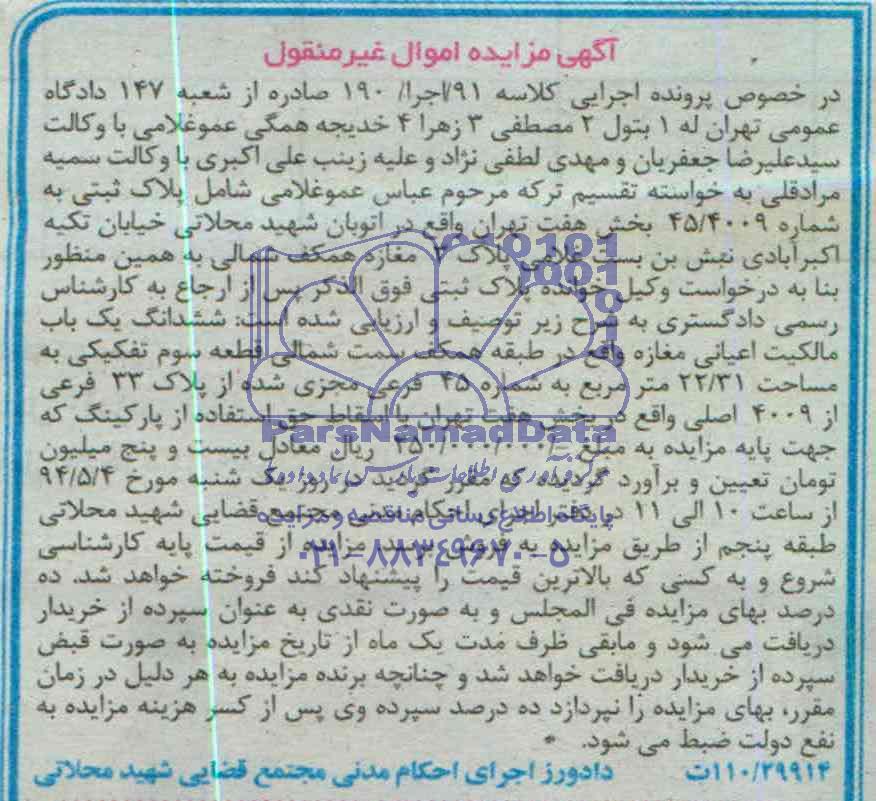 آگهی مزایده اموال غیرمنقول
در خصوص پرونده اجرایی کلاسه ۹۱/اجرا/ ۱۹۰ صادره از شعبه ۱۴۷ دادگاه
عمومی تهران له ۱ بتول ۲ مصطفی ۳ زهرا ۴ خدیجه همگی عموغلامی با وکالت
سیدعلیرضا جعفریان و مهدی لطفی نژاد و علیه زینب علی اکبری با وکالت سمیه
مرادقلی به خواسته تقسیم ترکه مرحوم عباس عموغلامی شامل پلاک ثبتی به
شماره ۴۵/۴۰۰۹ بخش هفت تهران واقع در اتوبان شهید محلاتی خیابان تکیه
اکبرآبادی نبش بن بست غلامی پلاک ۳ مغازه همکف شمالی به همین منظور
بنا به درخواست وکیل خوانده پلاک ثبتی فوق الذکر پس از ارجاع به کارشناس
رسمی دادگستری به شرح زیر توصیف و ارزیابی شده است: ششدانگ یک باب
مالکیت اعیانی مغازه واقع در طبقه همکف سمت شمالی قطعه سوم تفکیکی به
مساحت ۲۲/۳۱ متر مربع به شماره ۴۵ فرعی مجزی شده از پلاک ۳۳ فرعی
از ۴۰۰۹ اصلی واقع در بخش هفت تهران با اسقاط حق استفاده از پارکینگ که
جهت پایه مزایده به مبلغ ۲۵۰/۰۰۰/۰۰۰ ریال معادل بیست و پنج میلیون
تومان تعیین و برآورد گردیده که مقرر گردید در روز یک شنبه مورخ ۹۴/۵/۴
از ساعت ۱۰ الی ۱۱ در دفتر اجرای احکام مدنی مجتمع قضایی شهید محلاتی
طبقه پنجم از طریق مزایده به فروش برسد. مزایده از قیمت پایه کارشناسی
شروع و به کسی که بالاترین قیمت را پیشنهاد کند فروخته خواهد شد. ده
درصد بهای مزایده فی المجلس و به صورت نقدی به عنوان سپرده از خریدار
دریافت می شود و مابقی ظرف مدت یک ماه از تاریخ مزایده به صورت قبض
سپرده از خریدار دریافت خواهد شد و چنانچه برنده مزایده به هر دلیل در زمان
مقرر، بهای مزایده را نپردازد ده درصد سپرده وی پس از کسر هزینه مزایده به
نفع دولت ضبط می شود.
۱۱۰/۲۹۹۱۴ت دادورز اجرای احکام مدنی مجتمع قضایی شهید محلاتی
ParsNamadData
پایگاه اطلاع رسانی مناقصه و مزایده
۰۲۱-۸۸۳۴۹۶۷۰-۵